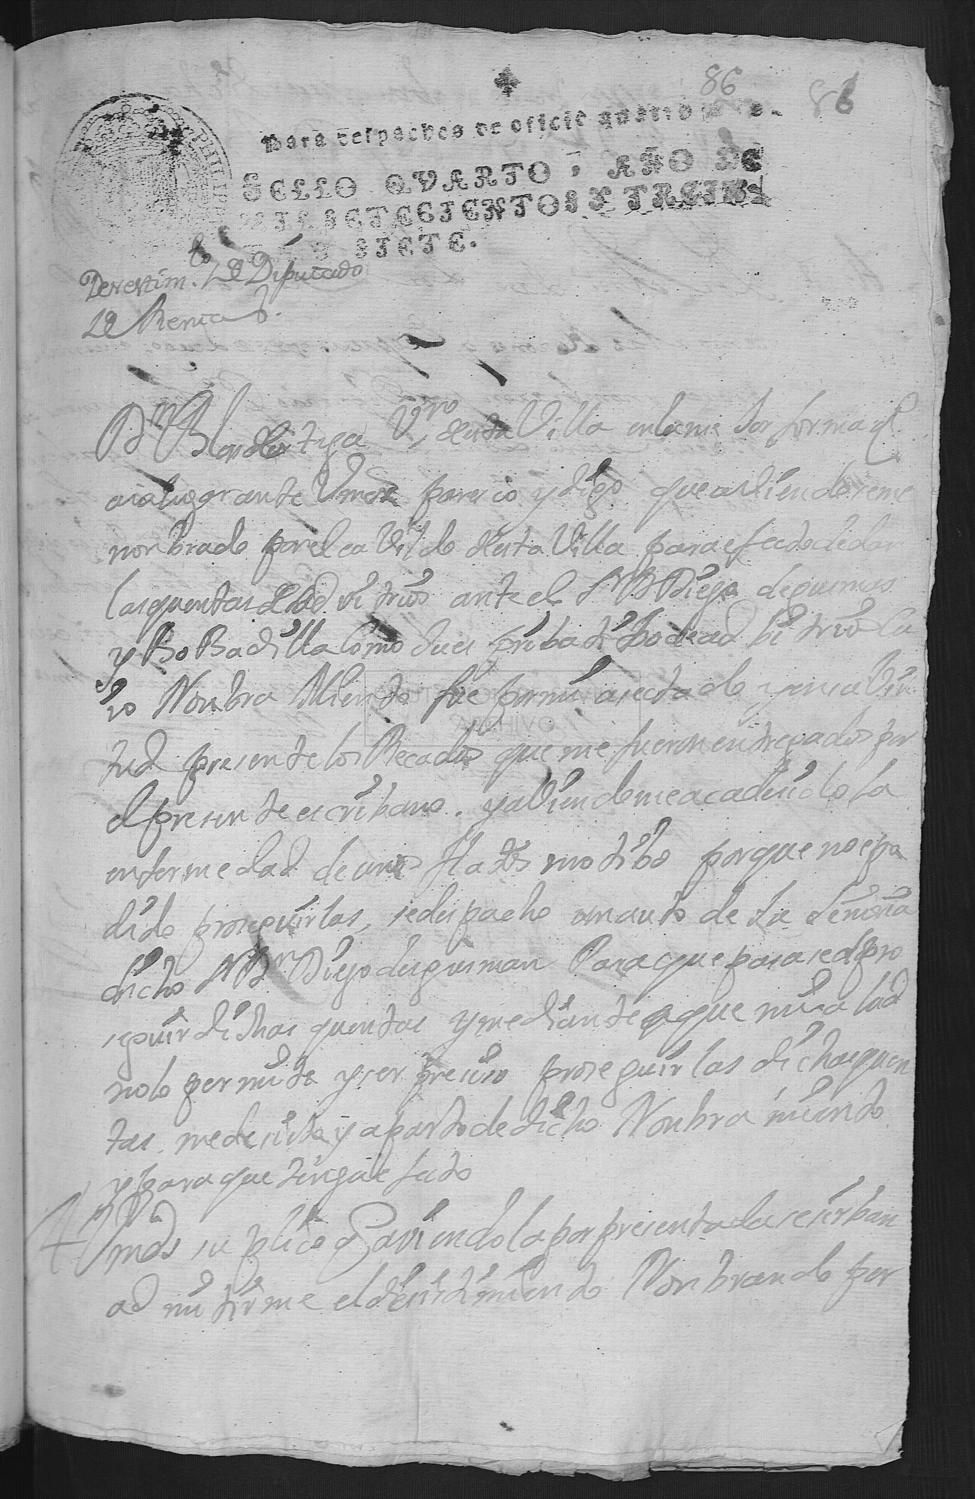 86 86
Para despachos de oficio quatro mrs.
SELLO QVARTO, AÑO DE
MIL SETECIENTOS Y TREIN
TA Y SIETE.
PHILIP
Desestim. de Diputado
de Rentas.
Dn Blas de Ortega Vno desta Villa en la mejor forma q
aia lugar ante Vmds parezco y digo que aviendoseme
nombrado por el cavildo desta Villa para efecto de dar
las quentas de advitrios ante el Sr Dn Diego de guzman
y Bobadilla como Juez pribatibo de advitrios cu
io Nombramiento fue por mi aceptado y en su vir
tud presente los Recados que me fueron entregados por
el presente escribano. y aviendome acaecido la
enfermedad de unos flatos motibo porque no e po
dido proseguirlas, se despacho un auto de la Señoria
dicho Sr Dn Diego de guzman Para que pasase a pro
seguir dichas quentas y mediante a que mi salud
no lo permite y ser preciso proseguir las dichas quen
tas. me desisto y aparto de dicho Nombramiento.
y para que tenga efecto
A Vmds suplico q aviendo la por presentada se sirban
admitirme el desistimiento Nombrando per